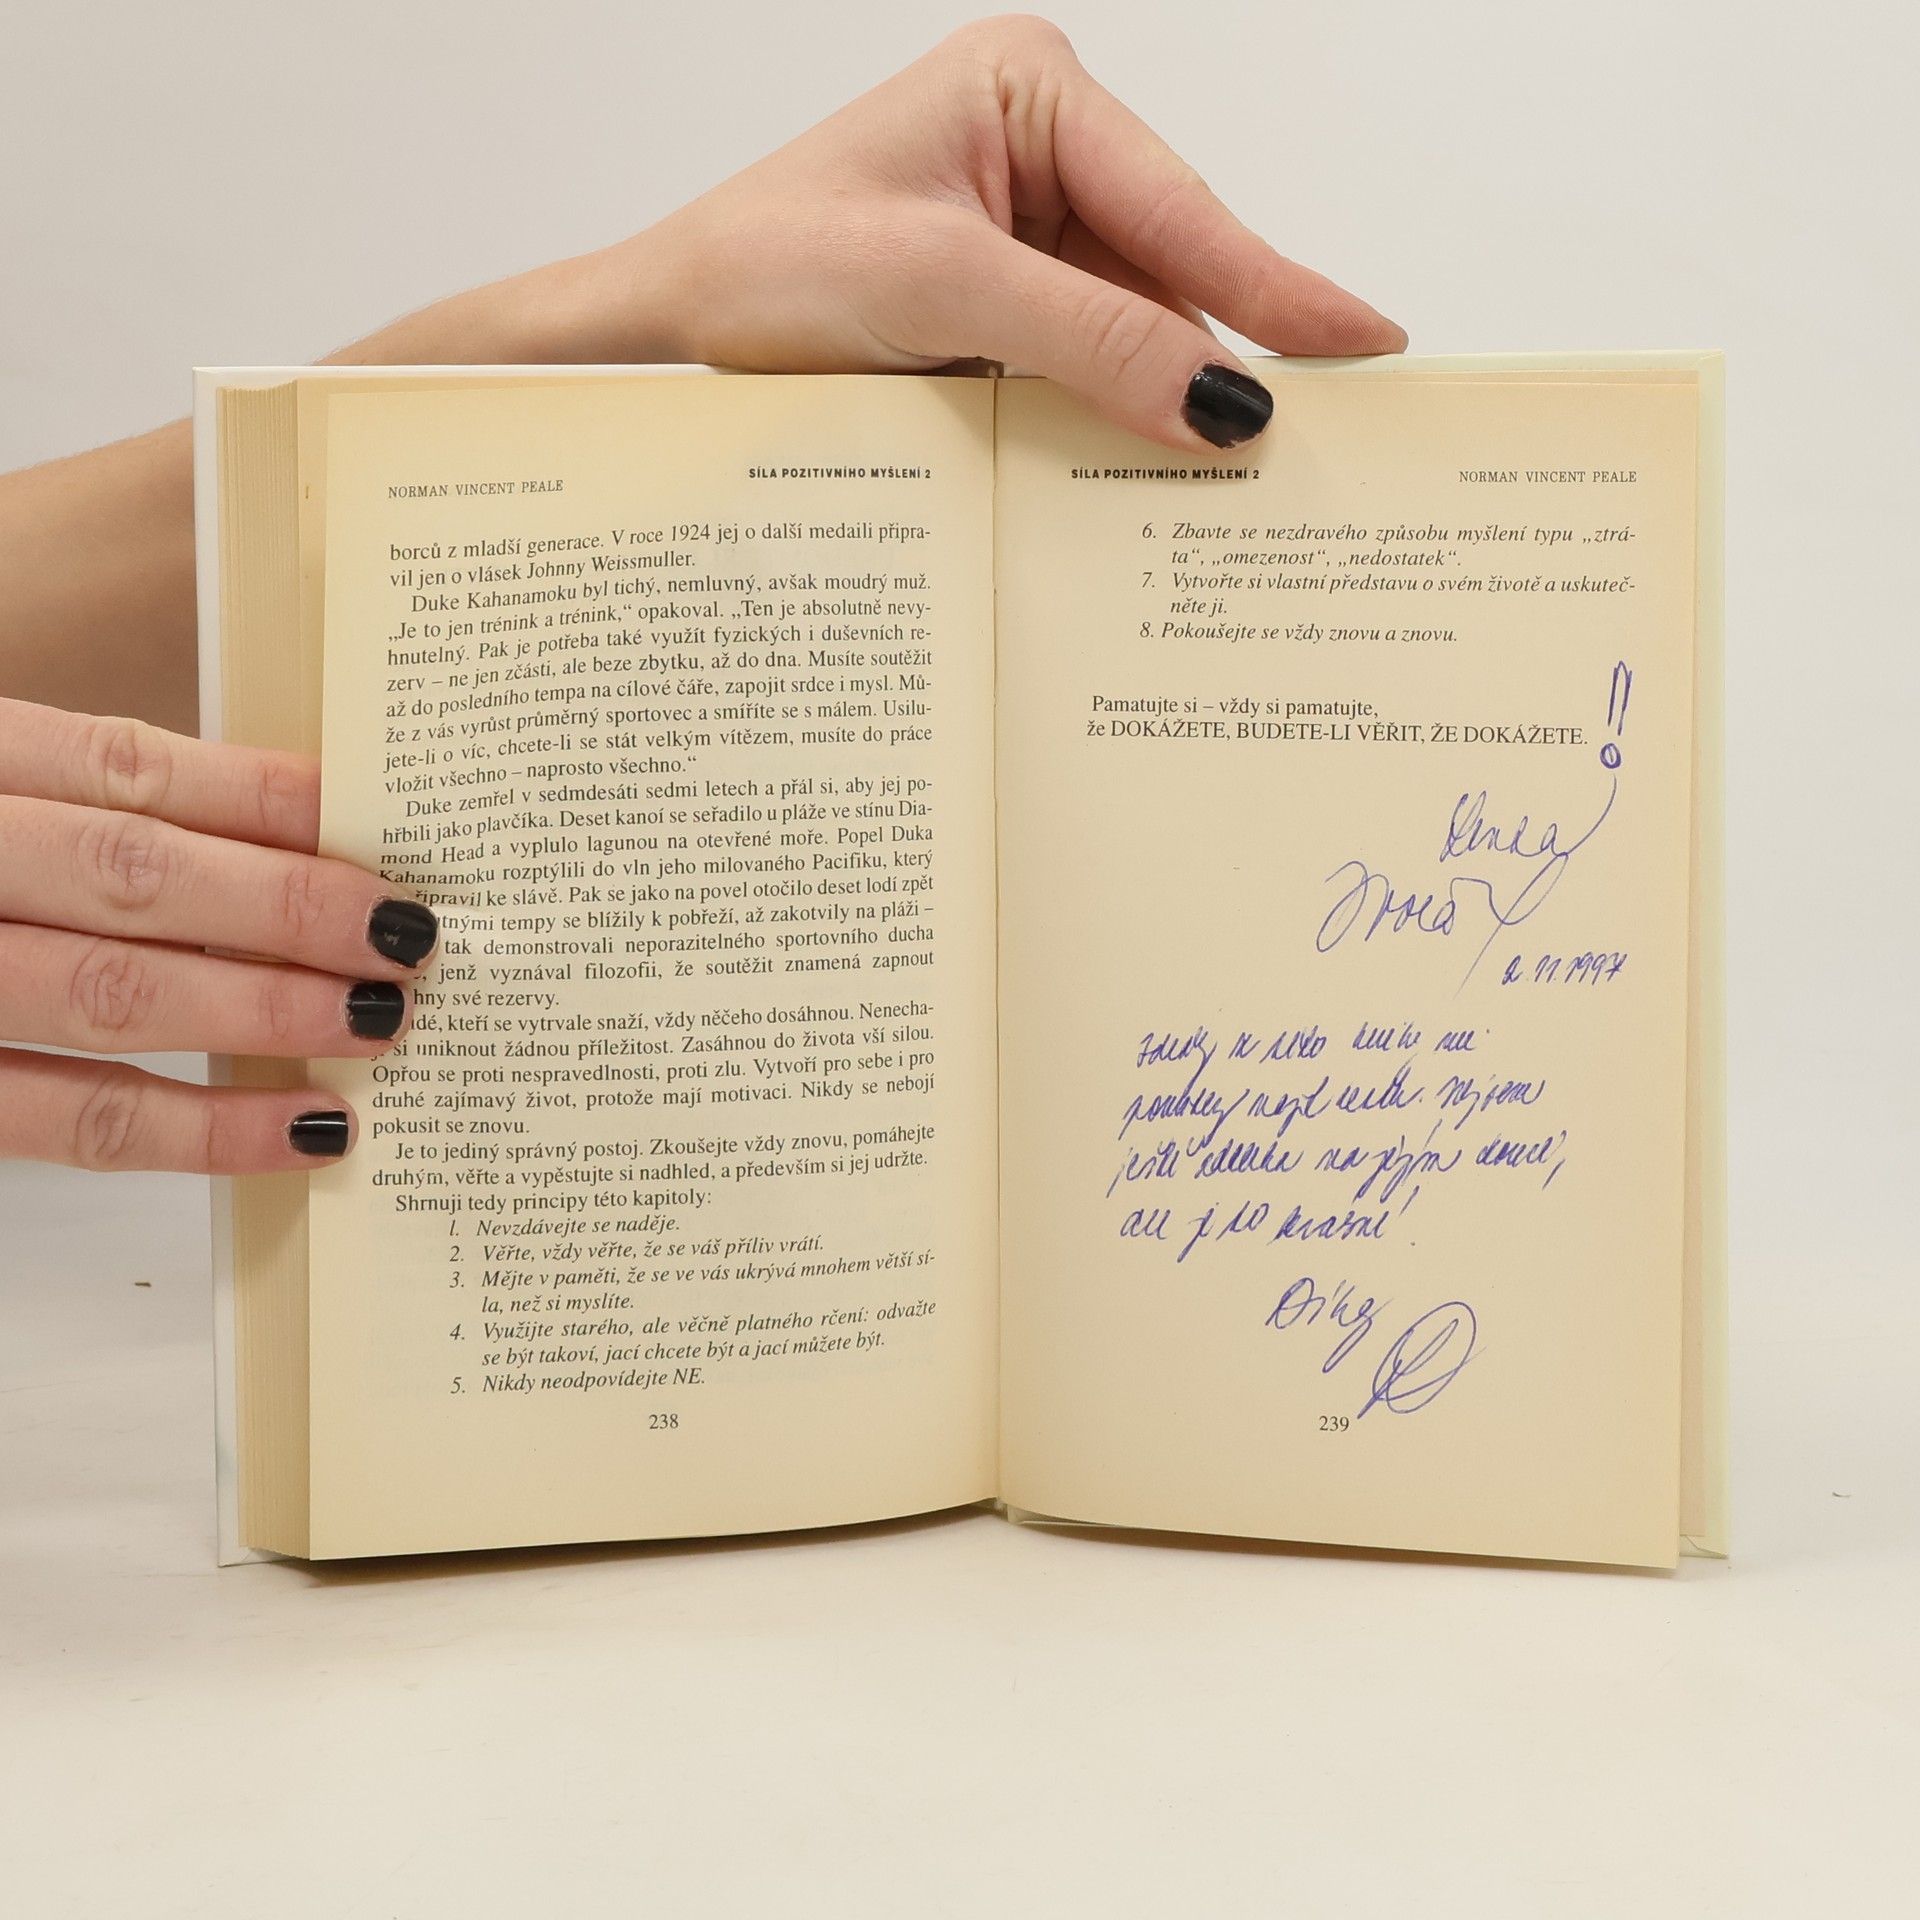 NORMAN VINCENT PEALE
SÍLA POZITIVNÍHO MYŠLENÍ 2
borců z mladší generace. V roce 1924 jej o další medaili připra-
vil jen o vlásek Johnny Weissmuller.
Duke Kahanamoku byl tichý, nemluvný, avšak moudrý muž.
„Je to jen trénink a trénink,“ opakoval. „Ten je absolutně nevy-
hnutelný. Pak je potřeba také využít fyzických i duševních re-
zerv – ne jen zčásti, ale beze zbytku, až do dna. Musíte soutěžit
až do posledního tempa na cílové čáře, zapojit srdce i mysl. Mů-
že z vás vyrůst průměrný sportovec a smíříte se s málem. Usilu-
jete-li o víc, chcete-li se stát velkým vítězem, musíte do práce
vložit všechno – naprosto všechno.“
Duke zemřel v sedmdesáti sedmi letech a přál si, aby jej po-
hřbili jako plavčíka. Deset kanoí se seřadilo u pláže ve stínu Dia-
mond Head a vyplulo lagunou na otevřené moře. Popel Duka
Kahanamoku rozptýlili do vln jeho milovaného Pacifiku, který
připravil ke slávě. Pak se jako na povel otočilo deset lodí zpět
tempy se blížily k pobřeží, až zakotvily na pláži –
tak demonstrovali neporazitelného sportovního ducha
jenž vyznával filozofii, že soutěžit znamená zapnout
své rezervy.
kteří se vytrvale snaží, vždy něčeho dosáhnou. Nenecha-
si uniknout žádnou příležitost. Zasáhnou do života vší silou.
Opřou se proti nespravedlnosti, proti zlu. Vytvoří pro sebe i pro
druhé zajímavý život, protože mají motivaci. Nikdy se nebojí
pokusit se znovu.
Je to jediný správný postoj. Zkoušejte vždy znovu, pomáhejte
druhým, věřte a vypěstujte si nadhled, a především si jej udržte.
Shrnuji tedy principy této kapitoly:
l. Nevzdávejte se naděje.
2. Věřte, vždy věřte, že se váš příliv vrátí.
3. Mějte v paměti, že se ve vás ukrývá mnohem větší sí-
la, než si myslíte.
4. Využijte starého, ale věčně platného rčení: odvažte
se být takoví, jací chcete být a jací můžete být.
5. Nikdy neodpovídejte NE.
238
SÍLA POZITIVNÍHO MYŠLENÍ 2
NORMAN VINCENT PEALE
6. Zbavte se nezdravého způsobu myšlení typu „ztrá-
ta“, „omezenost“, „nedostatek“.
7. Vytvořte si vlastní představu o svém životě a uskuteč-
něte ji.
8. Pokoušejte se vždy znovu a znovu.
Pamatujte si – vždy si pamatujte,
že DOKÁŽETE, BUDETE-LI VĚŘIT, ŽE DOKÁŽETE.
!
Lenka
2. 11. 1997
mi
Nejsem
ještě zdaleka na jejím konci,
ale je to krásné!
Díky
239